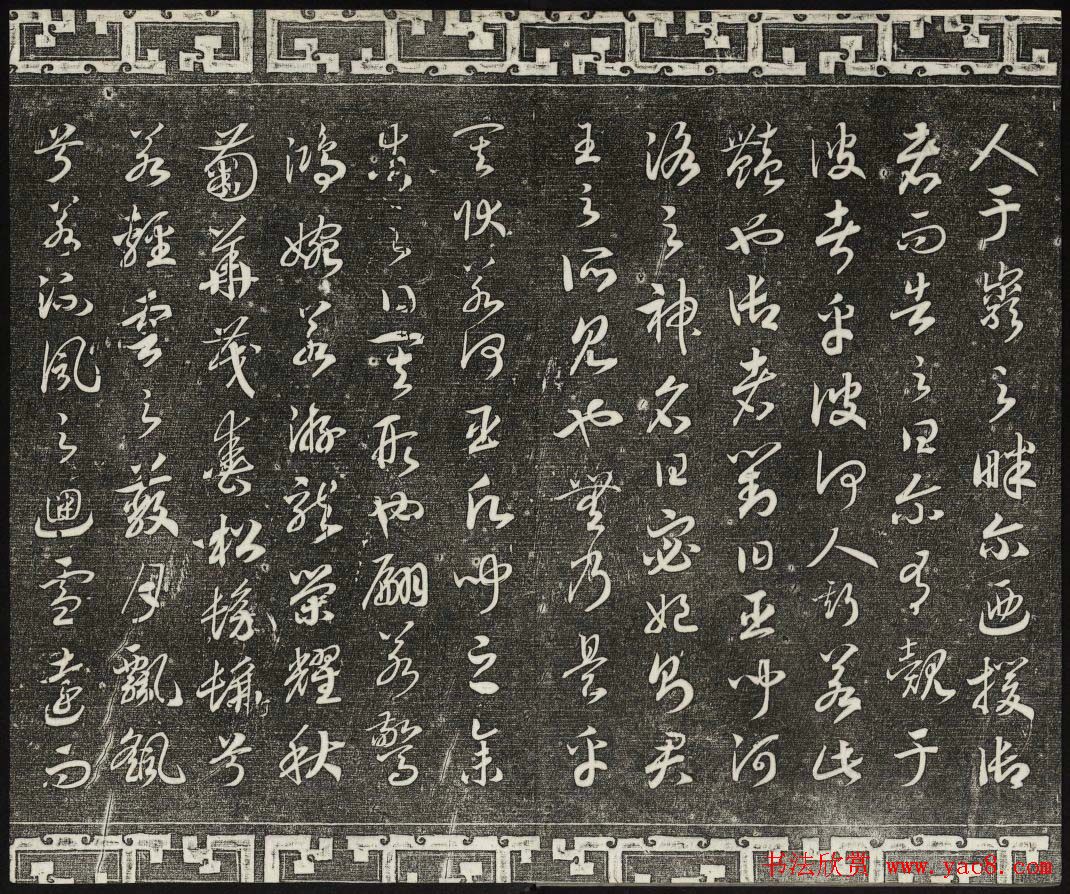 人于巖之畔尔迺援御
者而告之曰尔有覿于
彼者乎彼何人斯若此
豔也御者對曰臣聞河
洛之神名曰宓妃則君
王之所見也無乃是乎
其狀若何臣願聞之余
告之曰其形也翩若驚
鴻婉若游龍榮耀秋
菊華茂春松髣髴兮
若輕雲之蔽月飄颻
兮若流風之迴雪遠而
书法欣赏 www.yac8.com